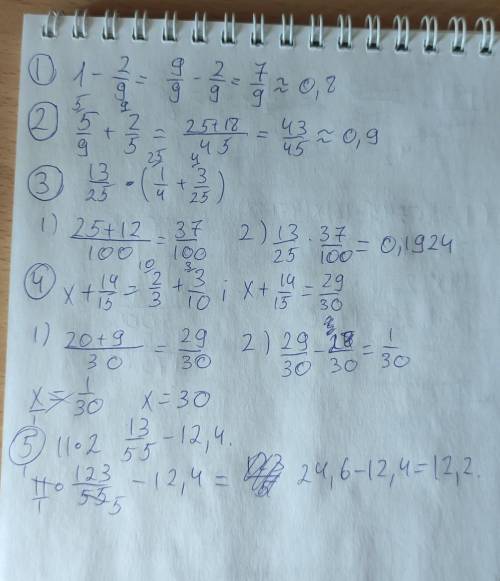 ① 1 - 2/9 = 9/9 - 2/9 = 7/9 ≈ 0,8
② 5/9 + 2/5 = (25+18)/45 = 43/45 ≈ 0,9
③ 13/25 · (1/4 + 3/25)
1) (25+12)/100 = 37/100 2) 13/25 · 37/100 = 0,1924
④ x + 14/15 = 2/3 + 3/10 ; x + 14/15 = 29/30
1) (20+9)/30 = 29/30 2) 29/30 - 28/30 = 1/30
x = 1/30 x = 30
⑤ 11 · 2 13/55 - 12,4.
11/1 · 123/55 - 12,4 = 24,6 - 12,4 = 12,2.